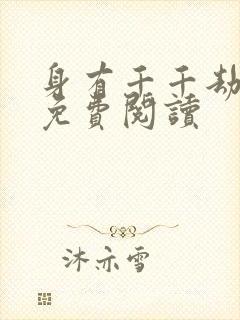 身有千千劫
免費閱讀
沐亦雪